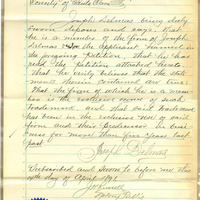 County of Santa Clara
Joseph Delmas being duly
sworn deposes and says: that
he is a member of the firm of Joseph
Delmas the applicant named in
the foregoing petition, that he has
read the petition attached hereto
that he verily believes that the state
ments therein contained are true,
that the firm of which he is a mem
ber is the exclusive owner of said
trademark and that said trademark
has been in the exclusive use of said
firm and their predecessor in busi
ness for more than five years last
past.
Joseph Delmas
Subscribed and sworn to before me this
day of April
Notary Public